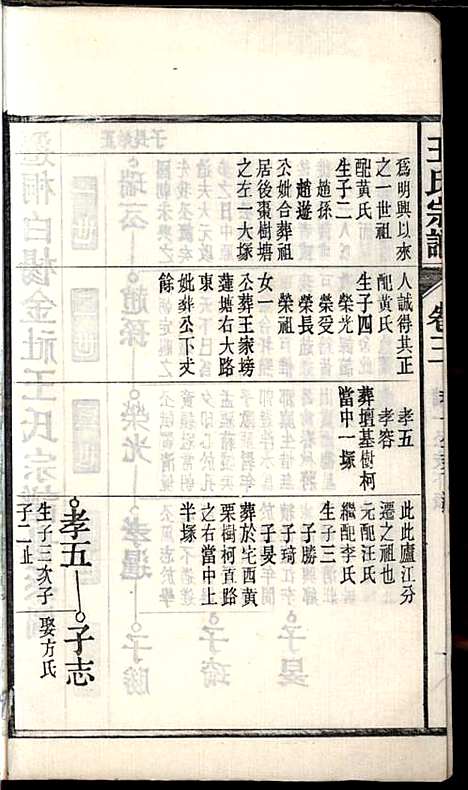 王氏宗譜
卷三
爲明興以來
之一世祖
配黃氏
生子二
趙孫
趙遊
公妣合葬祖
居後棗樹塘
之左一大塚
人誠得其正
配黃氏
生子四
榮光
榮受
榮長
榮祖
女一
公葬王家塝
蓮塘右大路
東
妣葬公下丈
餘
孝五
孝容
葬壇基樹柯
當中一塚
此此廬江分
遷之祖也
元配汪氏
繼配李氏
生子三
子勝
子琦
子旻
葬於宅西黃
栗樹柯直路
之右當中上
半塚
孝五——子志
生子三次子 娶方氏
子二止